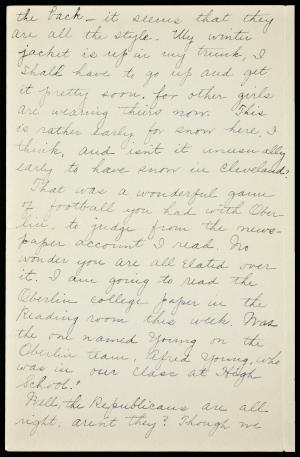 the back - it seems that they
are all the style. My winter
jacket is up in my trunk, I
shall have to go up and get
it pretty soon, for other girls
are wearing theirs now. This
is rather early for snow here, I
think, and isn't it unusually
early to have snow in Cleveland?
That was a wonderful game
of football you had with Ober-
lin, to judge from the news-
paper account I read. No
wonder you are all elated over
it. I am going to read the
Oberlin college paper in the
Reading room this week. Was
the one named Young on the
Oberlin team, Alfred Young, who
was in our class at High
School?
Well, the Republicans are all
right, aren't they? Though we